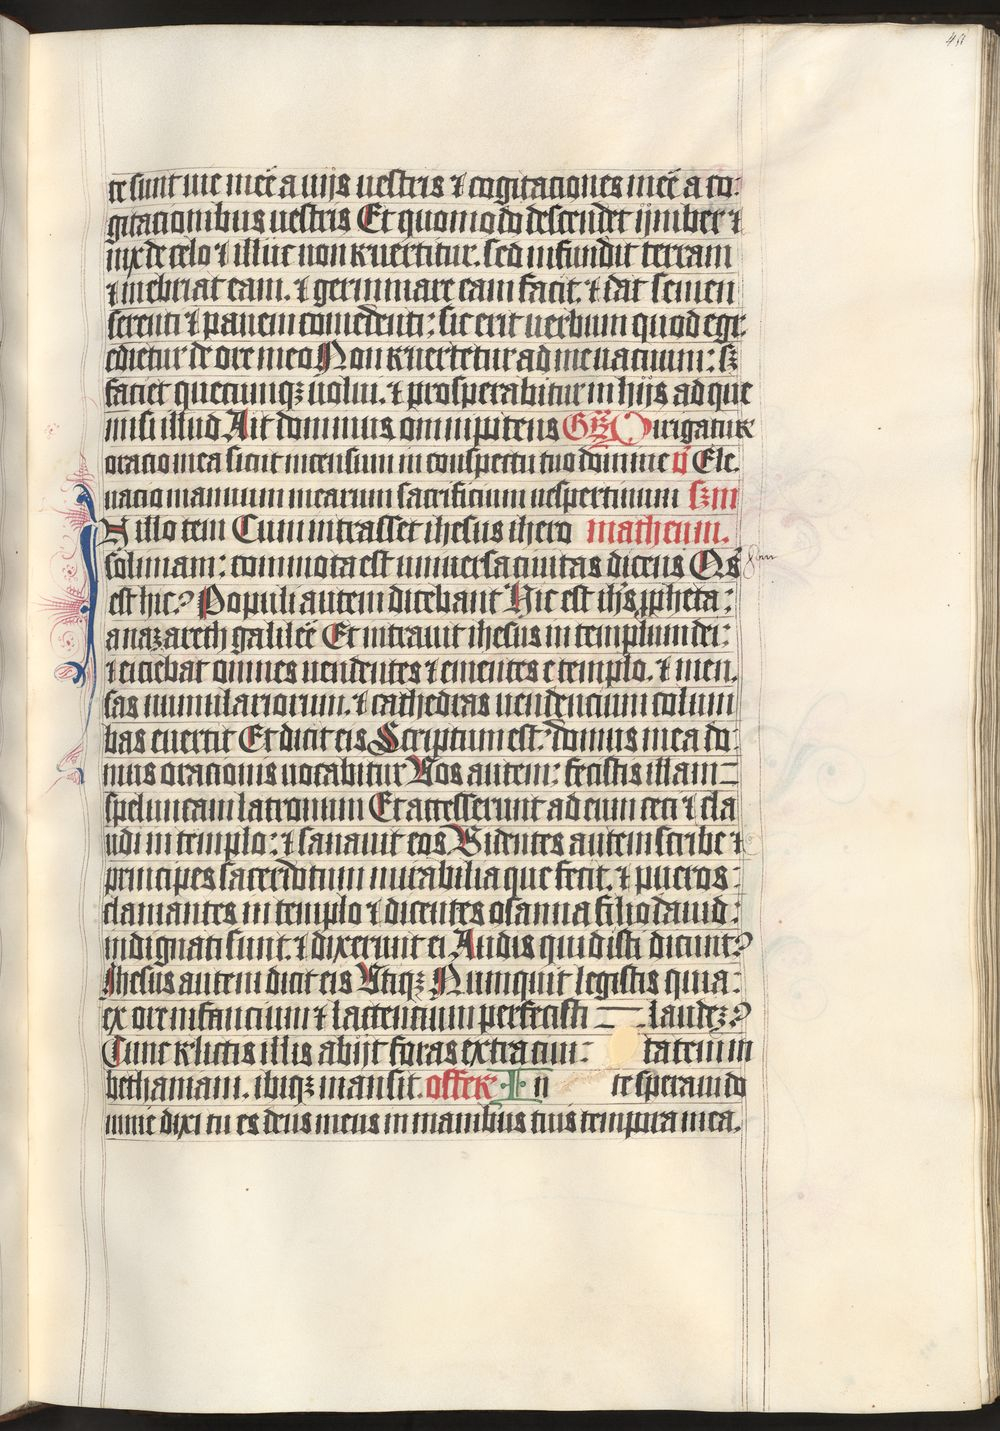 45
te sunt vie meē a vijs vestris ⁊ cogitaciones meē a co-
gitacionibus vestris Et quomodo descendet ijmber ⁊
nix de celo ⁊ illuc non reuertitur. sed infundit terram
⁊ inebriat eam. ⁊ germinare eam facit. ⁊ dat semen
serenti ⁊ panem comedenti: sic erit uerbum quod egr-
edietur de ore meo Non reuertetur ad me uacuum: sꝫ
faciet quecunqꝫ uolui. ⁊ prosperabitur in hijs ad que
misi illud Ait dominus omnipotens Gͬ Dirigatur
oracio mea sicut incensum in conspectu tuo domine v̄ Ele-
uacio manuum mearum sacrificium uespertinum sꝫm
In illo tem Cum intrasset ihesus ihero matheum.
solimam: commota est uniuersa ciuitas dicens Qs̄
est hic? Populi autem dicebant Hic est ihs̄ ꝓpheta:
a nazareth galileē Et intrauit ihesus in templum dei:
⁊ eiciebat omnes uendentes ⁊ ementes e templo. ⁊ men-
sas numulariorum. ⁊ cathedras uendencium colum
bas euertit Et dicit eis Scriptum est. domus mea do-
mus oracionis uocabitur Vos autem: fecistis illam
speluncam latronum Et accesserunt ad eum ceci ⁊ cla
udi in templo: ⁊ sanauit eos Videntes autem scribe ⁊
principes sacerdotum mirabilia que fecit. ⁊ pueros:
clamantes in templo ⁊ dicentes osanna filio dauid:
indignati sunt. ⁊ dixerunt ei Audis quid isti dicunt?
Ihesus autem dicit eis Vtiqꝫ Numquit legistis quia:
ex ore infancium ⁊ lactencium perfecisti laudeꝫ?
Tunc relictis illis abijt foras extra ciui: tatem in
bethaniam. ibiqꝫ mansit. offer In te speraui do
mine dixi tu es deus meus in manibus tuis tempora mea.